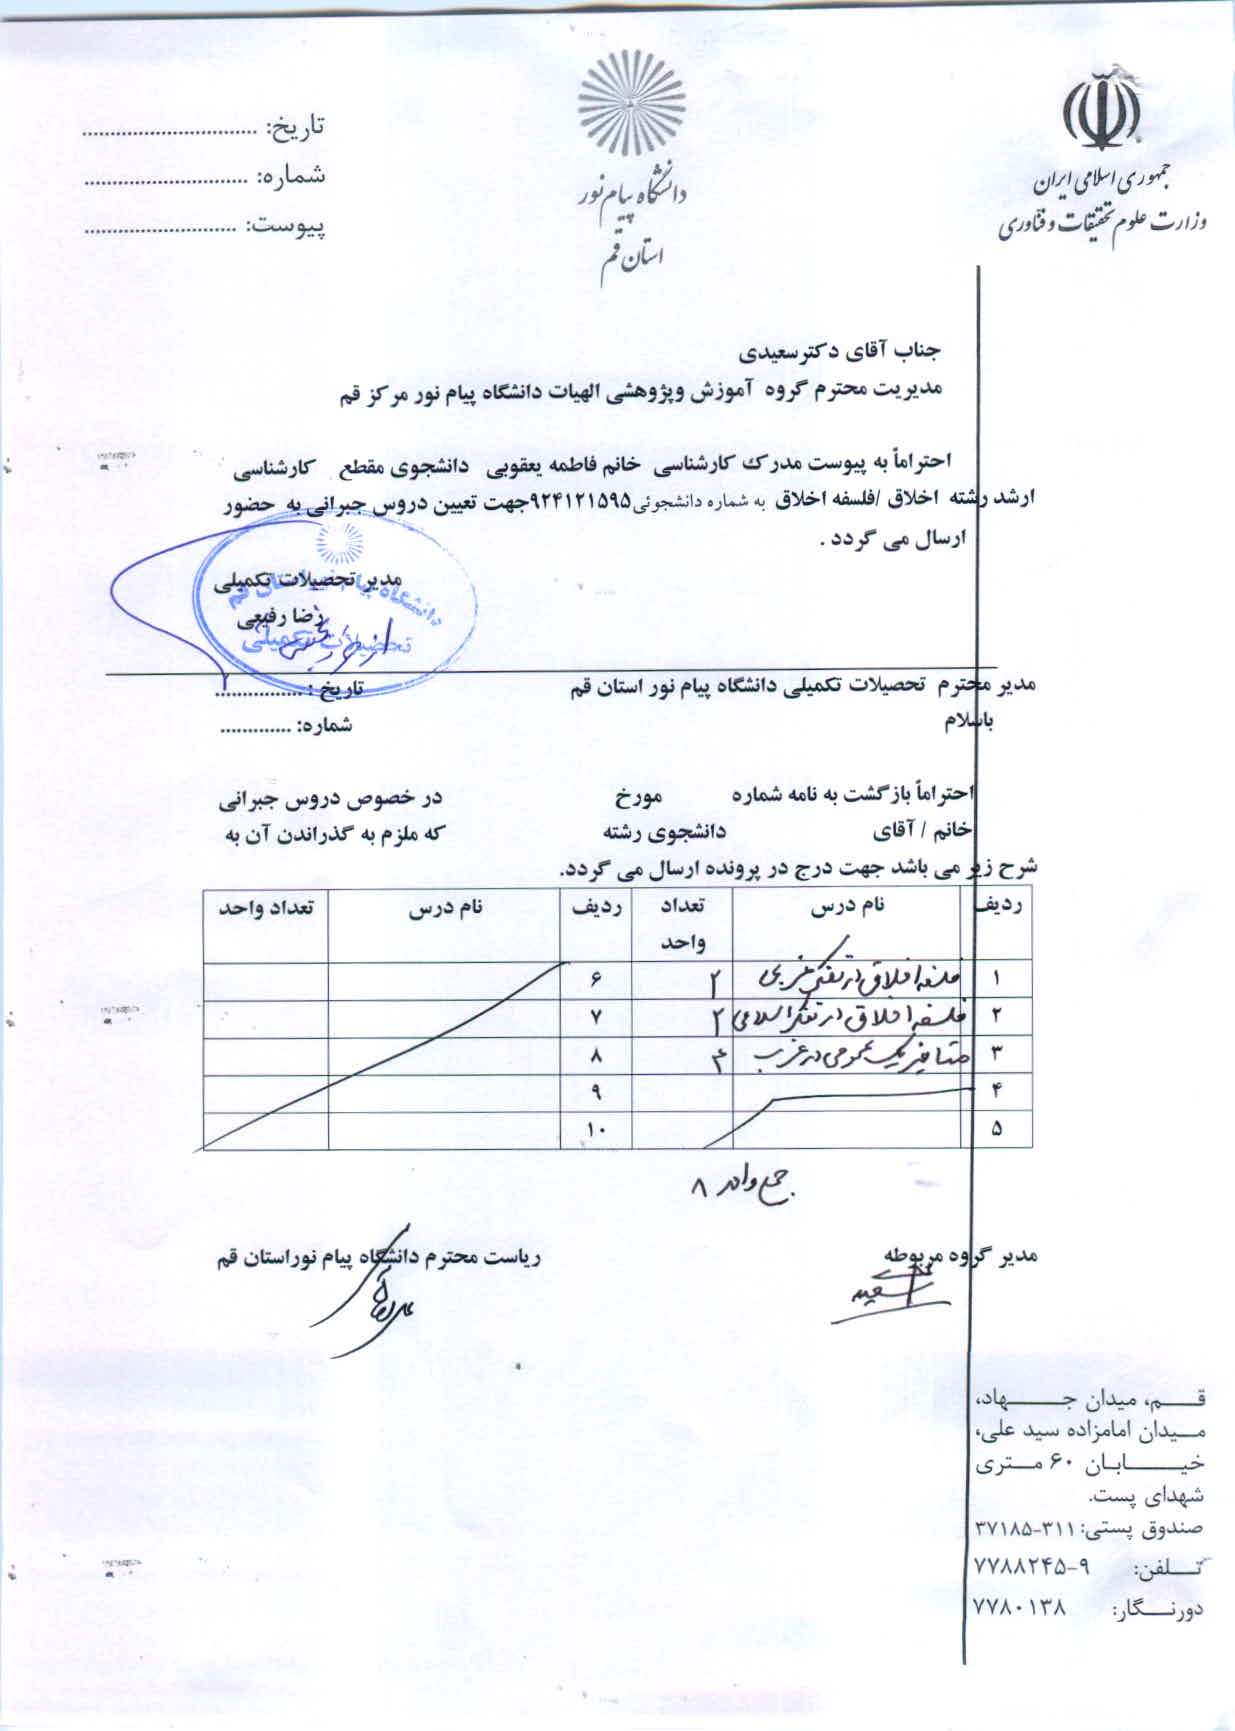 جمهوری اسلامی ایران
وزارت علوم تحقیقات و فناوری
دانشگاه پیام نور
استان قم
تاریخ: ................................
شماره: ..............................
پیوست: ............................
جناب آقای دکترسعیدی
مدیریت محترم گروه آموزش وپژوهشی الهیات دانشگاه پیام نور مرکز قم
احتراماً به پیوست مدرک کارشناسی خانم فاطمه یعقوبی دانشجوی مقطع کارشناسی
ارشد رشته اخلاق /فلسفه اخلاق به شماره دانشجوئی۹۲۴۱۲۱۵۹۵جهت تعیین دروس جبرانی به حضور
ارسال می گردد .
مدیر تحصیلات تکمیلی
رضا رفیعی
دانشگاه پیام نور استان قم
تحصیلات تکمیلی
مدیر محترم تحصیلات تکمیلی دانشگاه پیام نور استان قم تاریخ : ................
باسلام شماره: .............
احتراماً بازگشت به نامه شماره مورخ در خصوص دروس جبرانی
خانم / آقای دانشجوی رشته که ملزم به گذراندن آن به
شرح زیر می باشد جهت درج در پرونده ارسال می گردد.
ردیف نام درس تعداد واحد ردیف نام درس تعداد واحد
۱ فلسفه اخلاق در تفکر غربی ۲ ۶
۲ فلسفه اخلاق در تفکر اسلامی ۲ ۷
۳ متافیزیک عمومی در غرب ۴ ۸
۴ ۹
۵ ۱۰
جمع واحد ۸
مدیر گروه مربوطه ریاست محترم دانشگاه پیام نوراستان قم
سعیدی
قــم، میدان جــهاد،
مـیدان امامزاده سید علی،
خیــابـان ۶۰ مـتری
شهدای پست.
صندوق پستی: ۳۱۱-۳۷۱۸۵
تـلفن: ۹-۷۷۸۸۲۴۵
دورنـگار: ۷۷۸۰۱۳۸